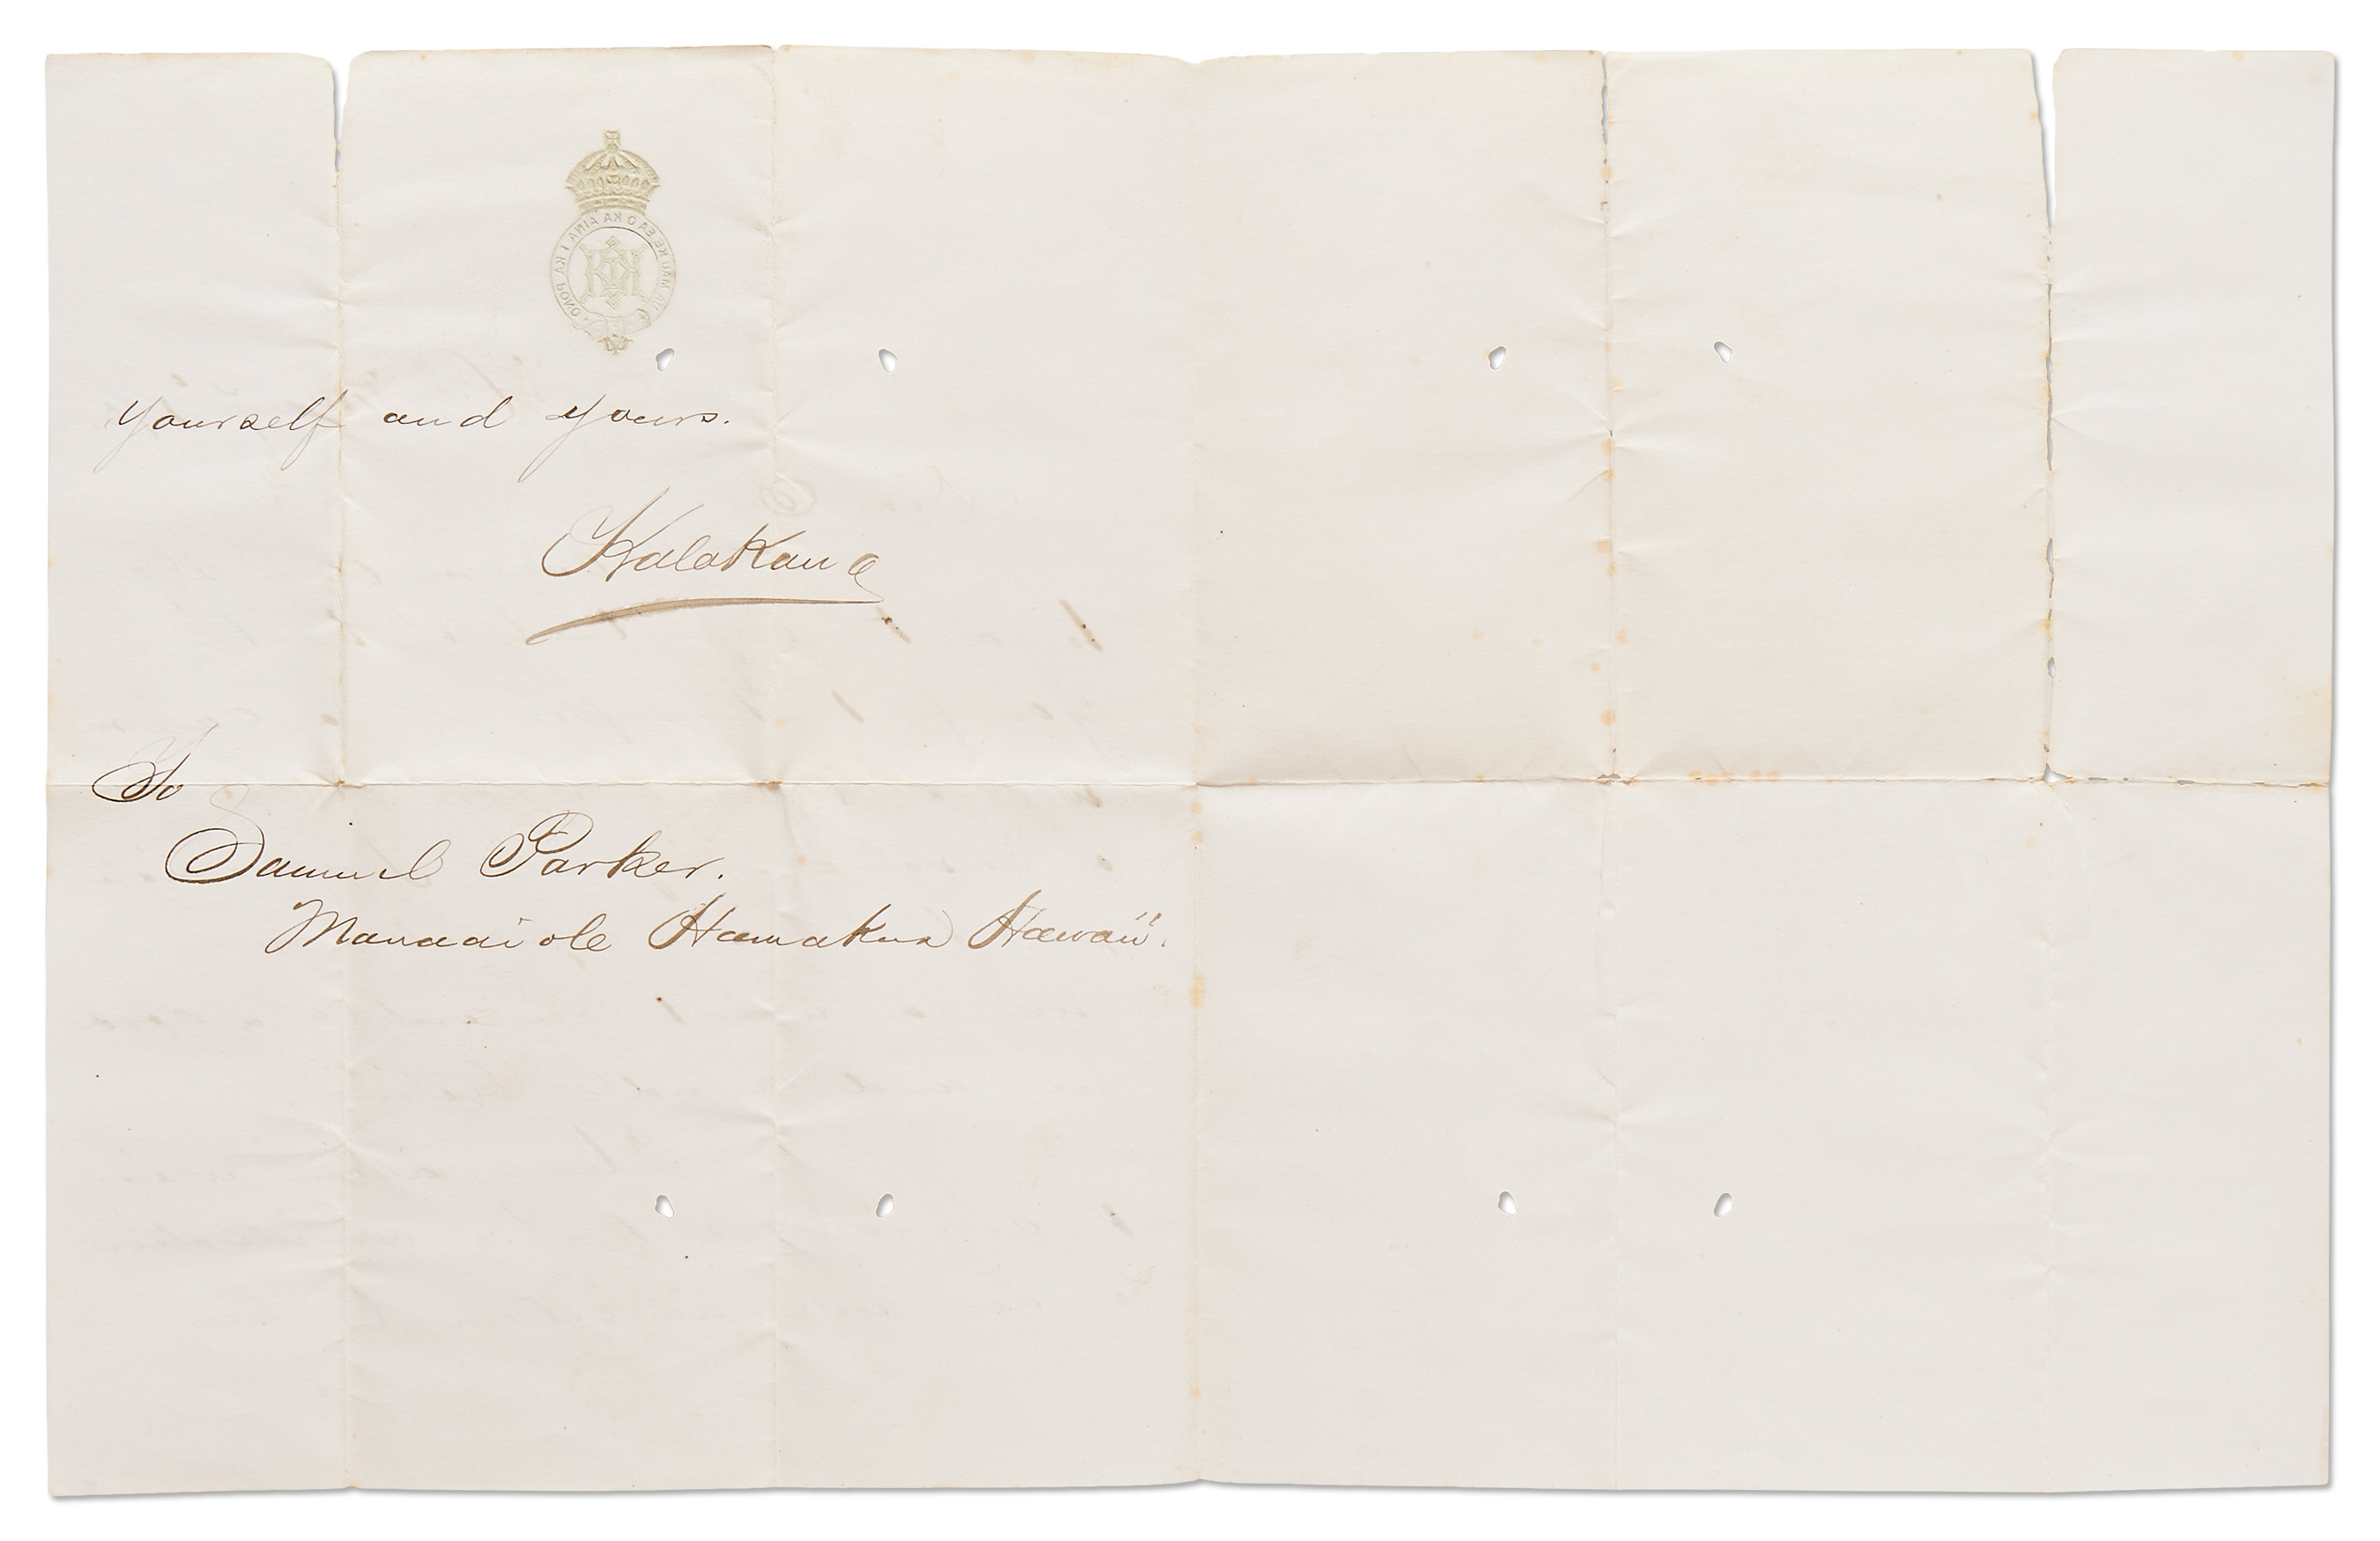 UA MAU KE EA O KA AINA I KA PONO
yourself and yours.
Kalakaua
To
Samuel Parker.
Manaaiole Hamakua Hawaii.